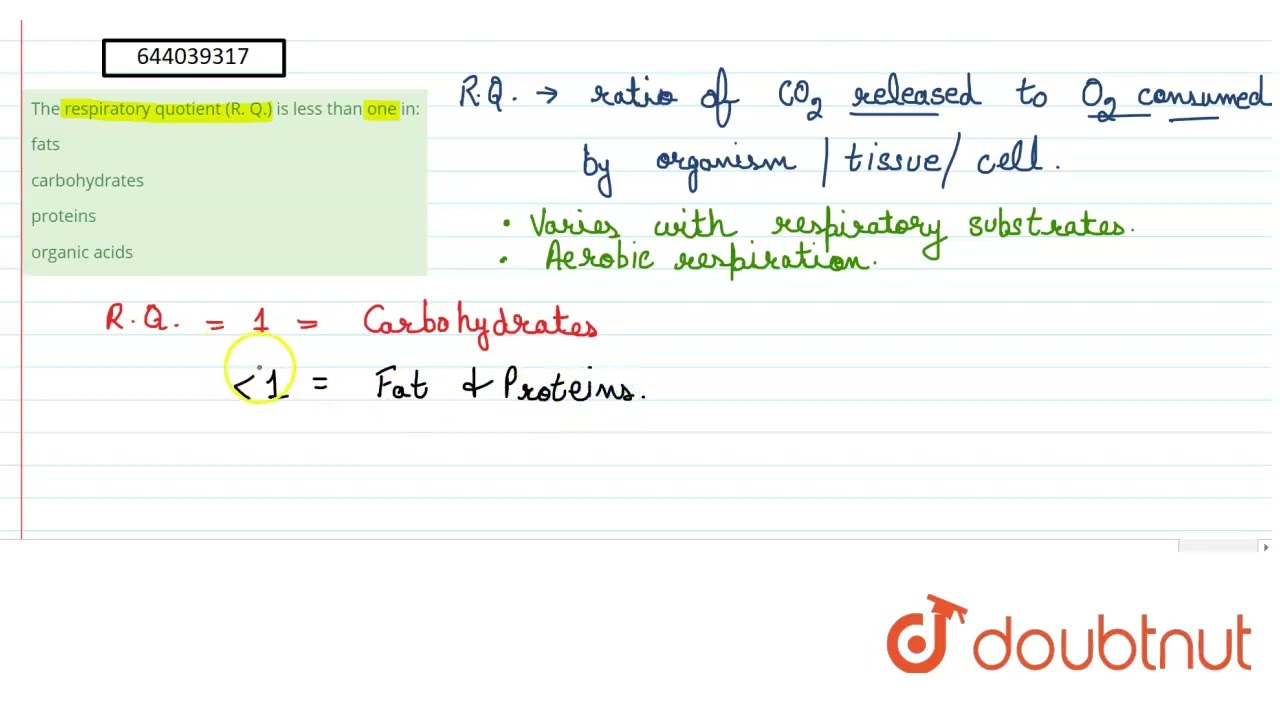 644039317
The respiratory quotient (R. Q.) is less than one in:
fats
carbohydrates
proteins
organic acids
R.Q. → ratio of CO₂ released to O₂ consumed
by organism / tissue / cell.
• Varies with respiratory substrates.
• Aerobic respiration.
R.Q. = 1 = Carbohydrates
<1 = Fat & Proteins.
doubtnut